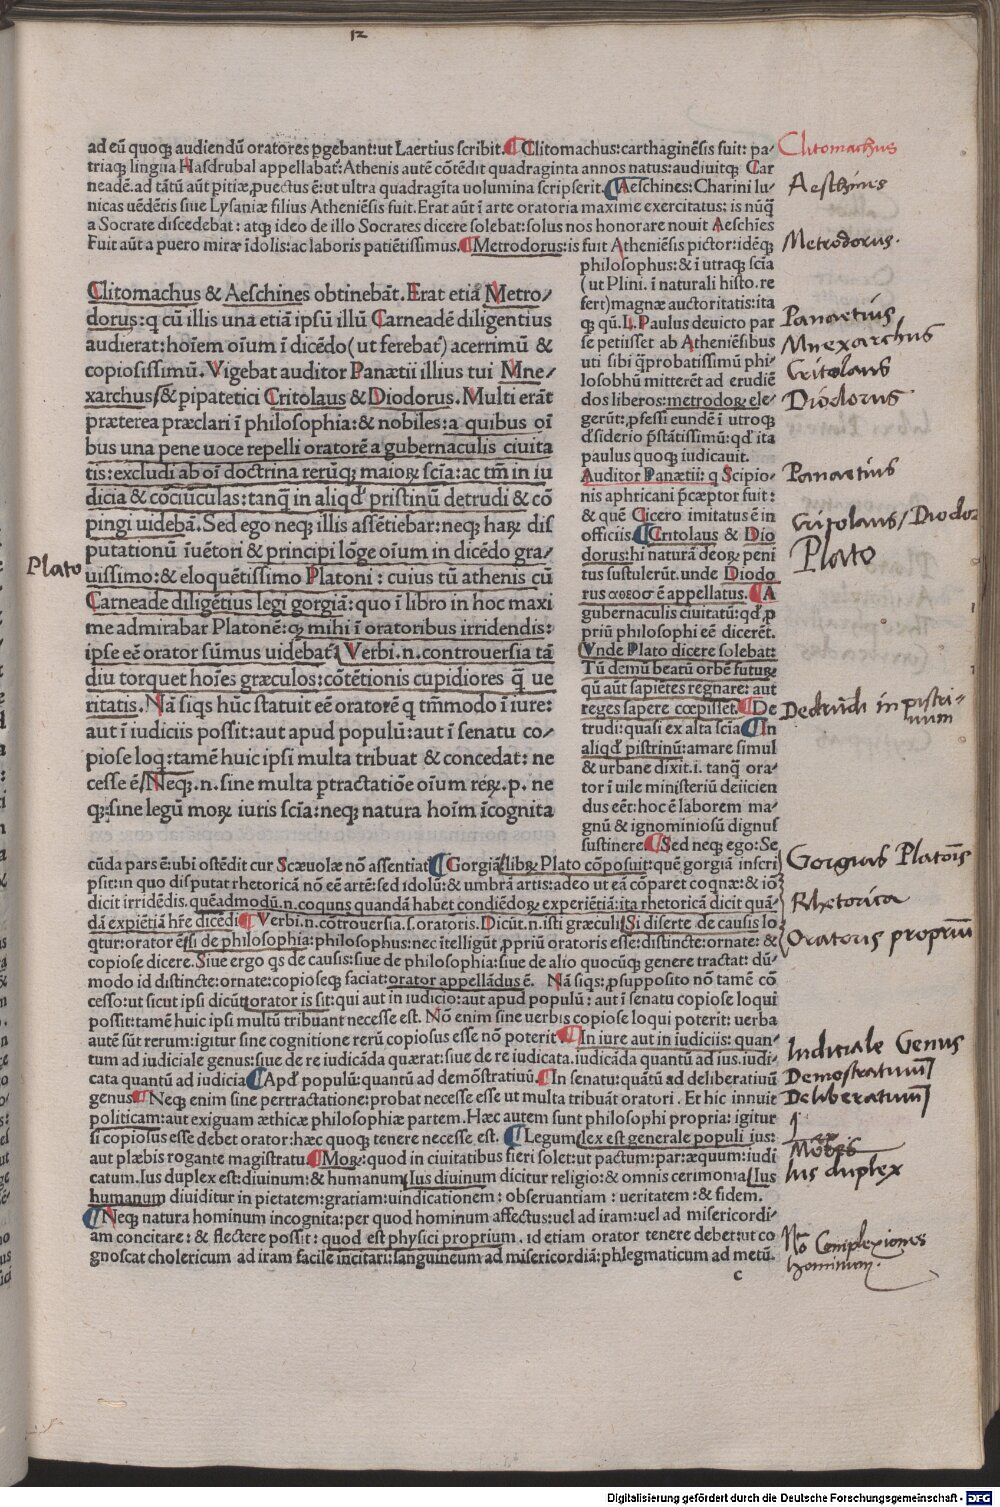 12
ad eū quoqꝫ audiendū oratores ꝑgebant:ut Laertius scribit. ¶ Clitomachus:carthaginēsis fuit: pa-
triaqꝫ lingua Hasdrubal appellabat᷑: Athenis autē cōtēdit quadraginta annos natus:audiuitqꝫ Car
neadē.ad tātū aūt pitiæ ꝓuectus ē:ut ultra quadragīta uolumina scripserit. ¶ Aeschines: Charini lu-
nicas uēdētis siue Lysaniæ filius Atheniēsis fuit. Erat aūt ī arte oratoria maxime exercitatus: is nūq̄
a Socrate discedebat: atqꝫ ideo de illo Socrates dicere solebat:solus nos honorare nouit Aeschīes
Fuit aūt a puero miræ īdolis:ac laboris patiētissimus. ¶ Metrodorus:is fuit Atheniēsis pictor:idēqꝫ
philosophus:& ī utraqꝫ scīa
(ut Plini. ī naturali histo.re
fert)magnæ auctoritatis:ita
qꝫ qū.L.Paulus deuicto per
se petiisset ab Atheniēsibus
uti sibi q̄probatissimū phi-
losobhū mitterēt ad erudiē
dos liberos:metrodoꝝ ele-
gerūt:ꝓfessi eundē ī utroqꝫ
d̕siderio p̄stātissimū:qd̕ ita
paulus quoqꝫ iudicauit.
Auditor Panætii: q Scipio-
nis aphricani p̄ceptor fuit:
& quē Cicero imitatus ē in
officiis. ¶ Critolaus & Dio
dorus:hi naturā deoꝝ peni
tus sustulerūt.unde Diodo
rus αθεοσ ē appellatus. ¶ A
gubernaculis ciuitatū:qd̕ ꝓ
priū philosophi eē dicerēt.
Vnde Plato dicere solebat:
Tū demū beatū orbē futuꝝ
qū aūt sapiētes regnare: aut
reges sapere cœpissēt. ¶ De
trudi:quasi ex alta scīa ¶ In
aliqd̕ pistrinū:amare simul
& urbane dixit.i. tanq̄ ora-
tor ī uile ministeriū deiicien
dus eēt:hoc ē laborem ma-
gnū & ignominiosū dignus
sustinere ¶ Sed neqꝫ ego:Se
Clitomachus & Aeschines obtinebāt. Erat etiā Metro/
dorus:q cū illis una etiā ipsū illū Carneadē diligentius
audierat:hoīem oīum ī dicēdo(ut ferebat᷑) acerrimū &
copiosissimū. Vigebat auditor Panætii illius tui Mne/
xarchus/& pipatetici Critolaus & Diodorus. Multi erāt
præterea præclari ī philosophia:& nobiles:a quibus oī
bus una pene uoce repelli oratorē a gubernaculis ciuita
tis:excludi ab oī doctrina rerūqꝫ maioꝝ scīa:ac tm̄ in iu
dicia & cōciūculas:tanq̄ in aliqd̕ pristinū detrudi & cō
pingi uidebā. Sed ego neqꝫ illis assētiebar:neqꝫ haꝝ dis
putationū īuētori & principi lōge oīum in dicēdo gra/
uissimo:& eloquētissimo Platoni: cuius tū athenis cū
Carneade diligētius legi gorgiā:quo ī libro in hoc maxi
me admirabar Platonē:qꝫ mihi ī oratoribus irridendis:
ipse eē orator sūmus uidebat᷑. Verbi.n.controuersia tā
diu torquet hoīes græculos:cōtētionis cupidiores q̄ ue
ritatis. Nā siqs hūc statuit eē oratorē q tm̄modo ī iure:
aut ī iudiciis possit:aut apud populū:aut ī senatu co/
piose loq:tamē huic ipsi multa tribuat & concedat: ne
cesse ē/Neqꝫ.n.sine multa ꝑtractatiōe oīum reꝝ.p. ne
qꝫ:sine legū moꝝ iuris scīa:neqꝫ natura hoīm īcognita
cūda pars ē:ubi ostēdit cur Scæuolæ nō assentiat᷑ ¶ Gorgiā:libꝝ Plato cōposuit:quē gorgiā inscri
psit:in quo disputat rhetoricā nō eē artē:sed idolū:& umbrā artis:adeo ut eā cōparet coqnæ:& iō
dicit irridēdis.quēadmodū.n.coquns quandā habet condiēdoꝝ experiētiā:ita rhetoricā dicit quā-
dā expiētiā hr̄e dicēdi ¶ Verbi.n.cōtrouersia.s.oratoris. Dicūt.n.isti græculi/Si diserte de causis lo
qtur:orator ē/si de philosophia:philosophus:nec ītelligūt ꝓpriū oratoris esse:distincte:ornate: &
copiose dicere.Siue ergo qs de causis:siue de philosophia:siue de alio quocūqꝫ genere tractat: dū-
modo id distincte:ornate:copioseqꝫ faciat:orator appellādus ē. Nā siqs:ꝓsupposito nō tamē cō
cesso:ut sicut ipsi dicūt/orator is sit:qui aut in iudicio:aut apud populū: aut ī senatu copiose loqui
possit:tamē huic ipsi multū tribuant necesse est. Nō enim sine uerbis copiose loqui poterit: uerba
autē sūt rerum:igitur sine cognitione rerū copiosus esse nō poterit ¶ In iure aut in iudiciis: quan-
tum ad iudiciale genus:siue de re iudicāda quærat:siue de re iudicata.iudicāda quantū ad ius.iudi-
cata quantū ad iudicia ¶ Apd̕ populū:quantū ad demōstratiuū. ¶ In senatu:quātū ad deliberatiuū
genus ¶ Neqꝫ enim sine pertractatione:probat necesse esse ut multa tribuāt oratori. Et hic innuit
politicam:aut exiguam æthicæ philosophiæ partem. Hæc autem sunt philosophi propria: igitur
si copiosus esse debet orator:hæc quoqꝫ tenere necesse est. ¶ Legum/lex est generale populi ius:
aut plæbis rogante magistratu. ¶ Moꝝ:quod in ciuitatibus fieri solet:ut pactum:par:æquum:iudi
catum.Ius duplex est:diuinum:& humanum/Ius diuinum dicitur religio:& omnis cerimonia/Ius
humanum diuiditur in pietatem:gratiam:uindicationem: obseruantiam: ueritatem:& fidem.
¶ Neqꝫ natura hominum incognita:per quod hominum affectus:uel ad iram:uel ad misericordi-
am concitare: & flectere possit: quod est physici proprium. id etiam orator tenere debet:ut co
gnoscat cholericum ad iram facile incitari:sanguineum ad misericordiā:phlegmaticum ad metū.
c
Plato
Clitomachus
Aeschines
Metrodorus.
Panaetius
Mnexarchus
Critolaus
Diodorus
Panaetius
Critolaus/Diodor
Plato
Detrudi in pistri-
num
Gorgias Platonis
Rhetorica
Oratoris proprium
Iudiciale Genus
Demostratiuum
Deliberatiuum
Ius duplex
No Complexiones
hominum.
Digitalisierung gefördert durch die Deutsche Forschungsgemeinschaft - DFG